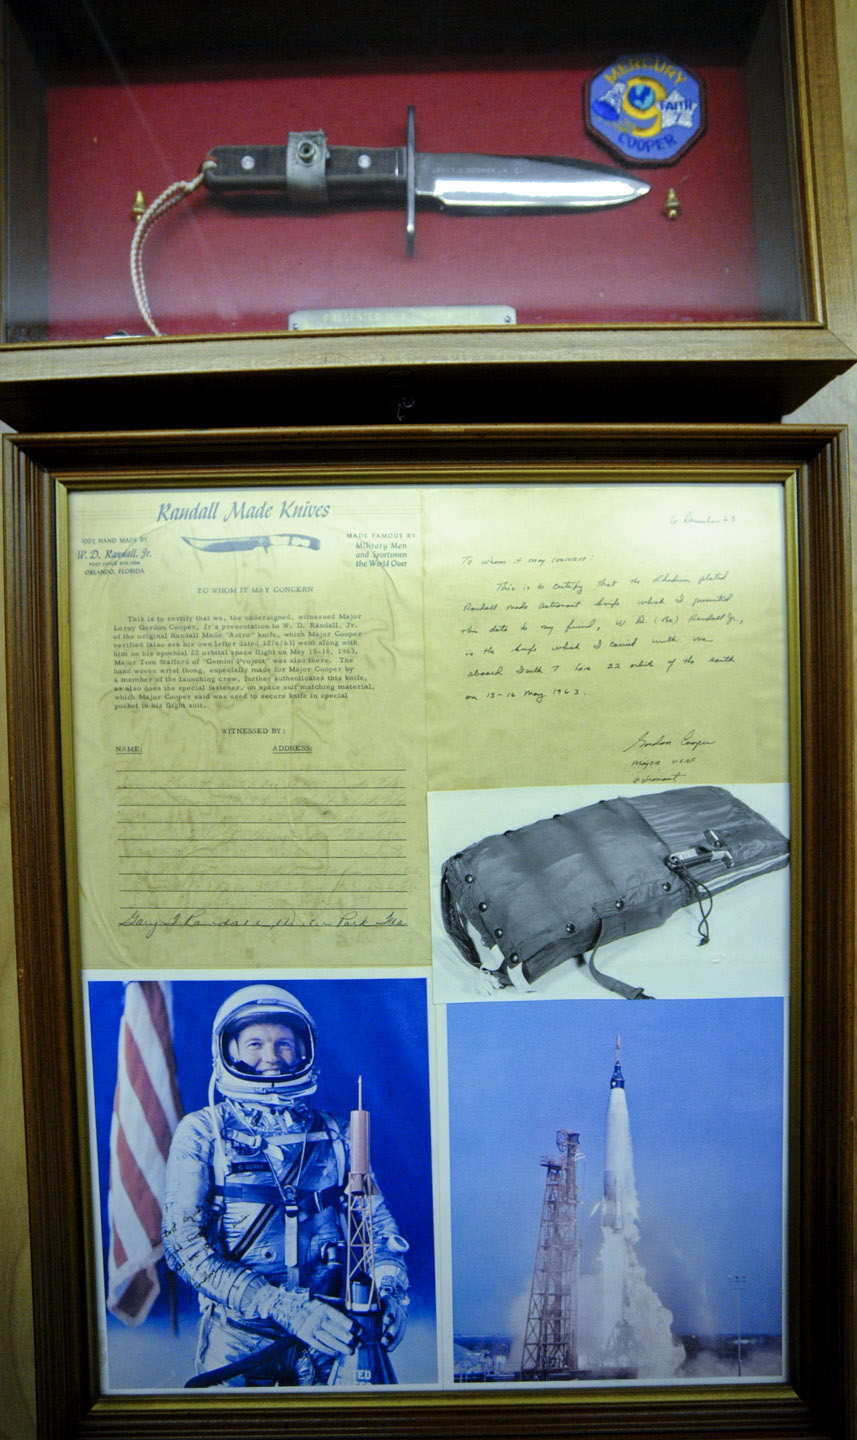 MERCURY
9
FAITH
7
COOPER
PRESENTED
Randall Made Knives
100% HAND MADE BY
W. D. Randall, Jr.
POST OFFICE BOX
ORLANDO, FLORIDA
MADE FAMOUS BY
Military Men
and Sportsmen
the World Over
TO WHOM IT MAY CONCERN
This is to certify that we, the undersigned, witnessed Major
Leroy Gordon Cooper, Jr's presentation to W. D. Randall, Jr.
of the original Randall Made "Astro" knife, which Major Cooper
verified (also see his own letter dated 12/6/63) went along with
him on his epochial 22 orbital space flight on May 15-16, 1963.
Major Tom Stafford of "Gemini Project" was also there. The
hand woven wrist thong, especially made for Major Cooper by
a member of the launching crew, further authenticates this knife,
as also does the special fastener, on space suit matching material,
which Major Cooper said was used to secure knife in special
pocket in his flight suit.
WITNESSED BY:
NAME: ADDRESS:
Gary T Randall Winter Park Fla
6 December 63
To whom it may concern:
This is to certify that the Rhodium plated
Randall made astronaut knife which I presented
this date to my friend, W. D. (Bo) Randall Jr.,
is the knife which I carried with me
aboard Faith 7 for 22 orbits of the earth
on 15-16 May 1963.
Gordon Cooper
Major USAF
Astronaut